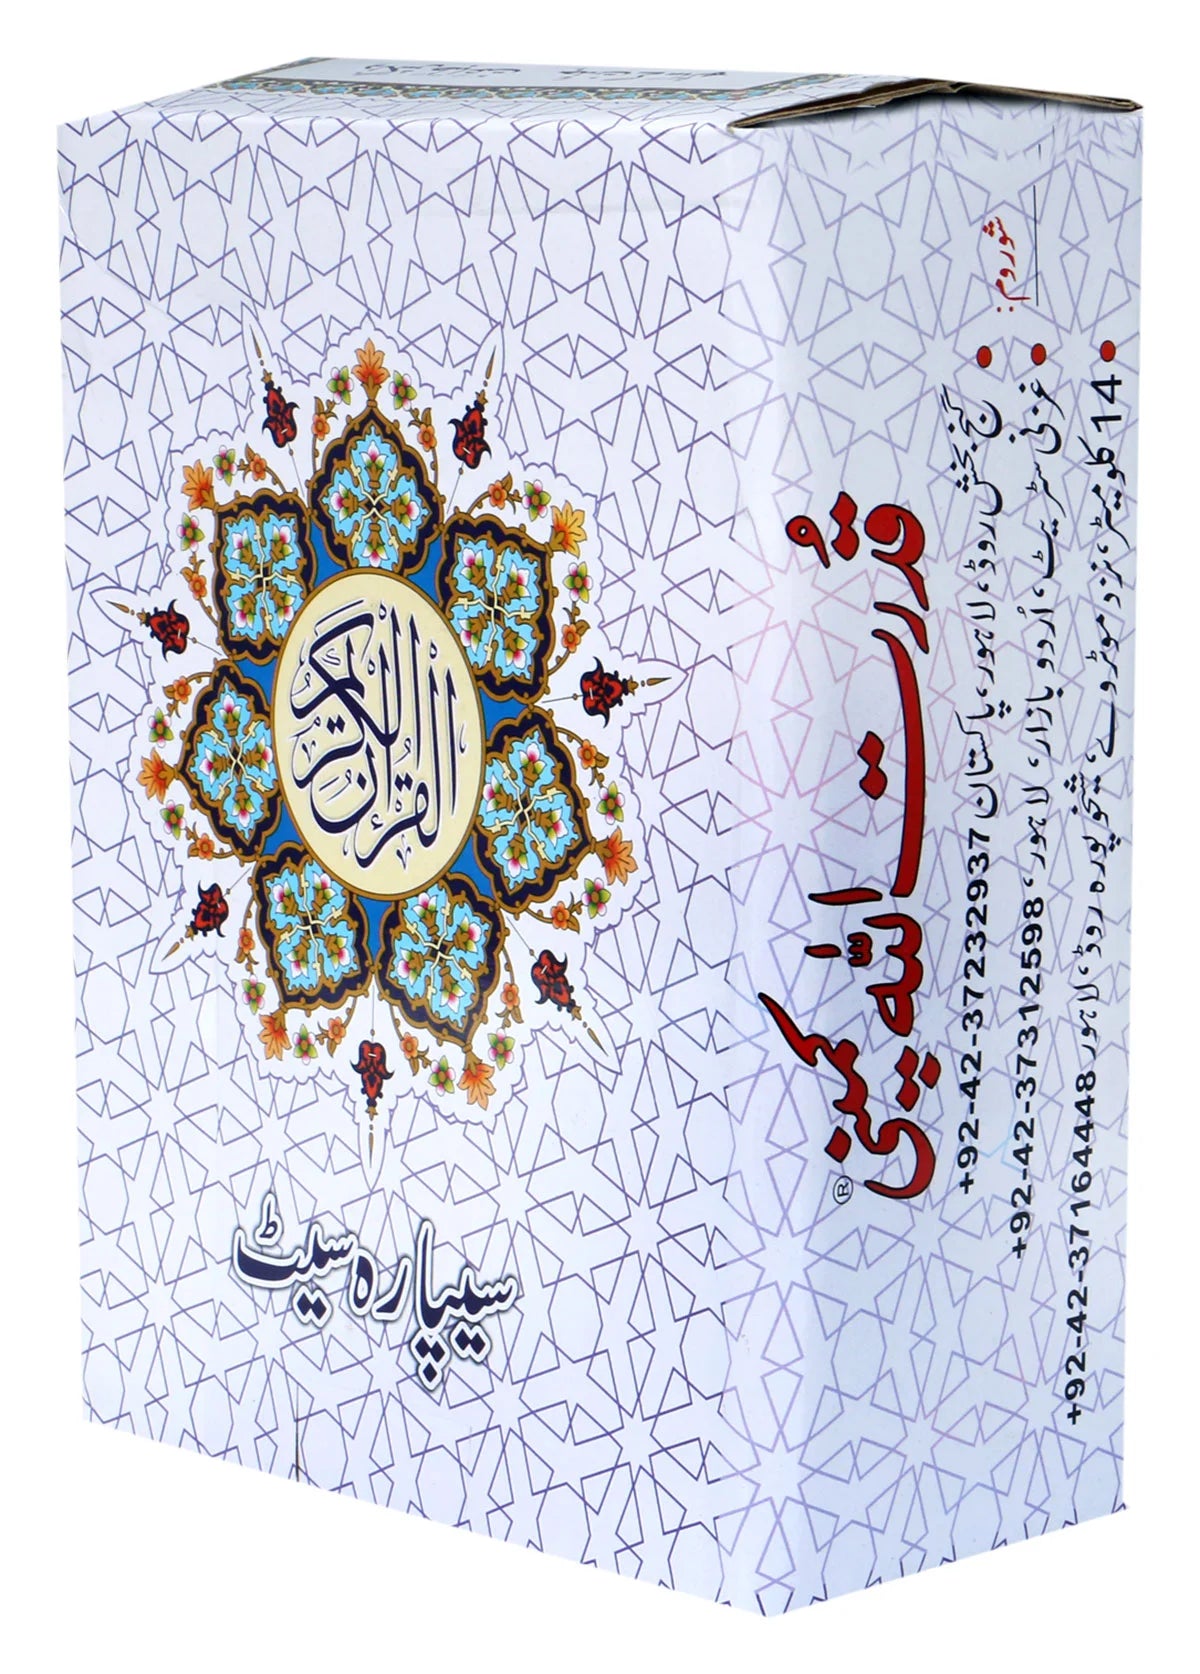 القرآن الكريم
سیپارہ سیٹ
قُدرت اللّٰہ کمپنی
®
شوروم:
گنج بخش روڈ، لاہور، پاکستان +92-42-37232937
غزنی سٹریٹ، اُردو بازار، لاہور، +92-42-37312598
14 کلومیٹر، نزد موٹروے، شیخوپورہ روڈ، لاہور +92-42-37164448